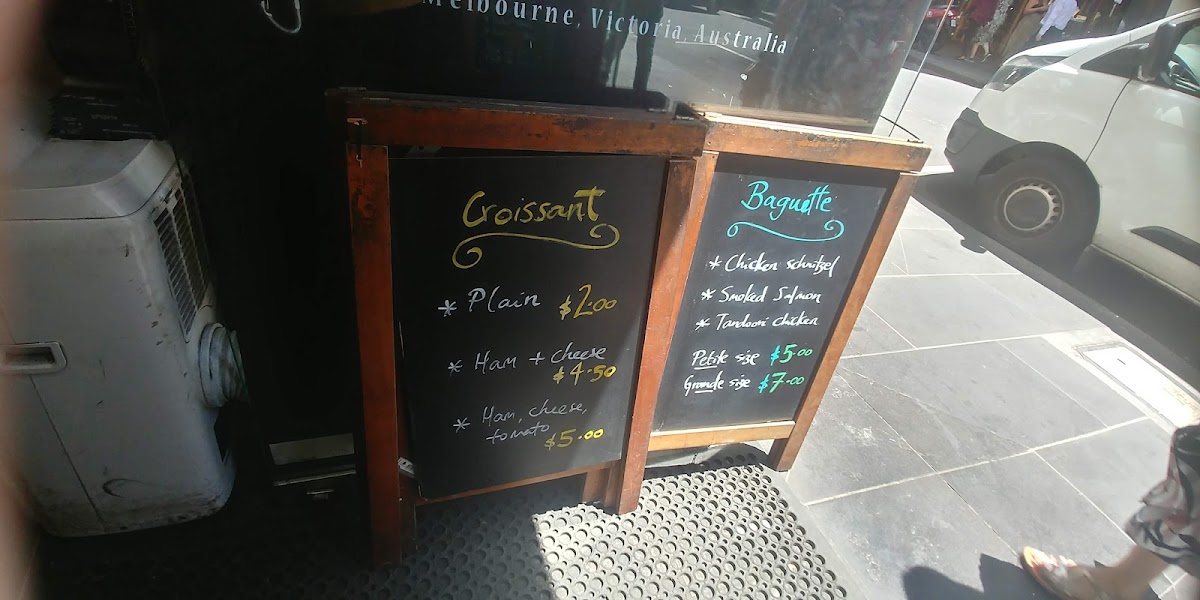 Melbourne, Victoria, Australia
Croissant
* Plain $2.00
* Ham + cheese
$4.50
* Ham, cheese,
tomato $5.00
Baguette
* Chicken schnitzel
* Smoked Salmon
* Tandoori chicken
Petite size $5.00
Grande size $7.00